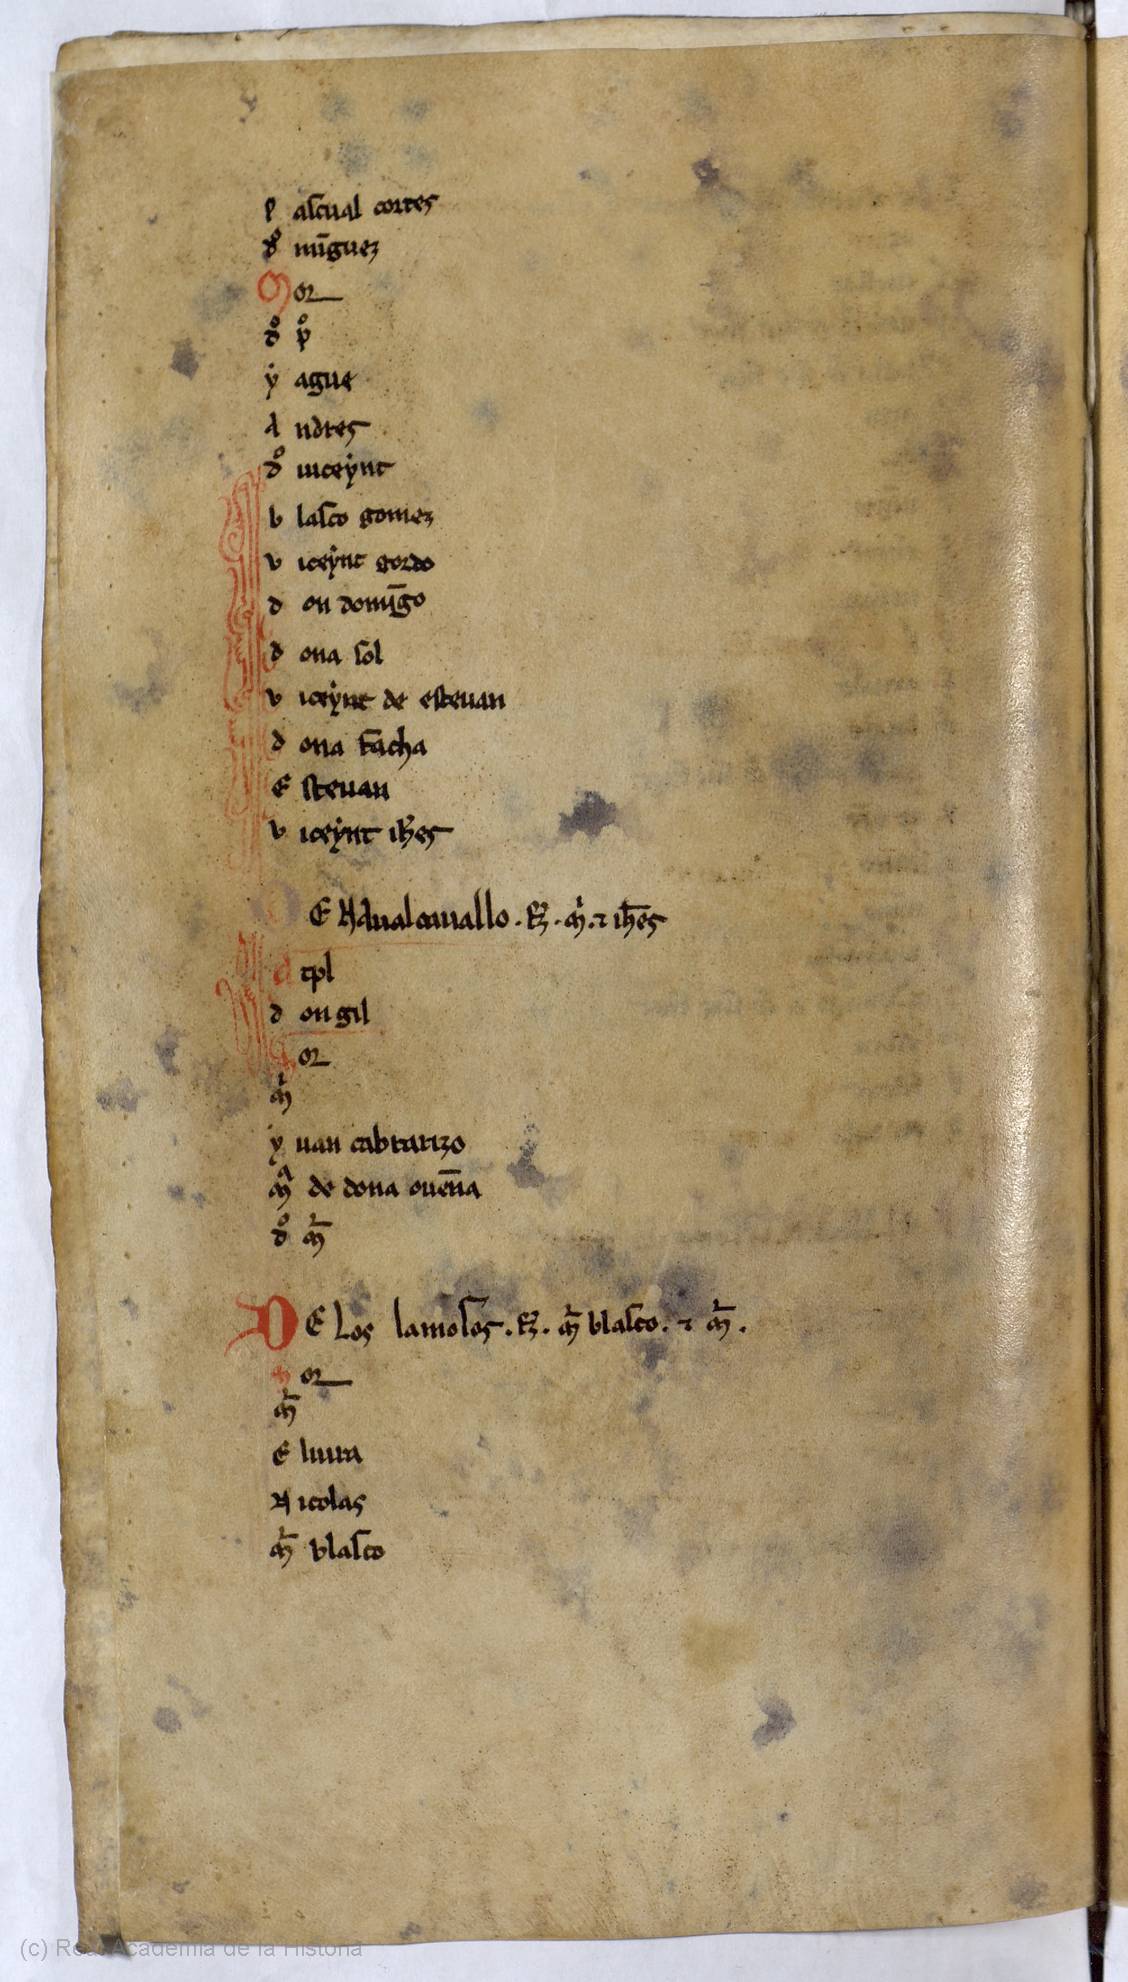 P ascual cortes
dº mĩguez
M or
dº pº
y ague
A ndres
dº uiceynt
b lasco gomez
v iceynt gordo
d on domĩgo
d ona sol
v iceynt de esteuan
d ona facha
E steuan
v iceynt ih̄es
E Adualcauallo . R̄ . m̄ . ⁊ ih̄es
d tpl
d on gil
M or
m̄
y uan cabrarizo
mᵃ de dona oueñia
dº m̄
DE Los lamosos . R̄ . m̄ blasco . ⁊ m̄ .
M or
m̄
E luira
N icolas
m̄ blasco
(c) Real Academia de la Historia